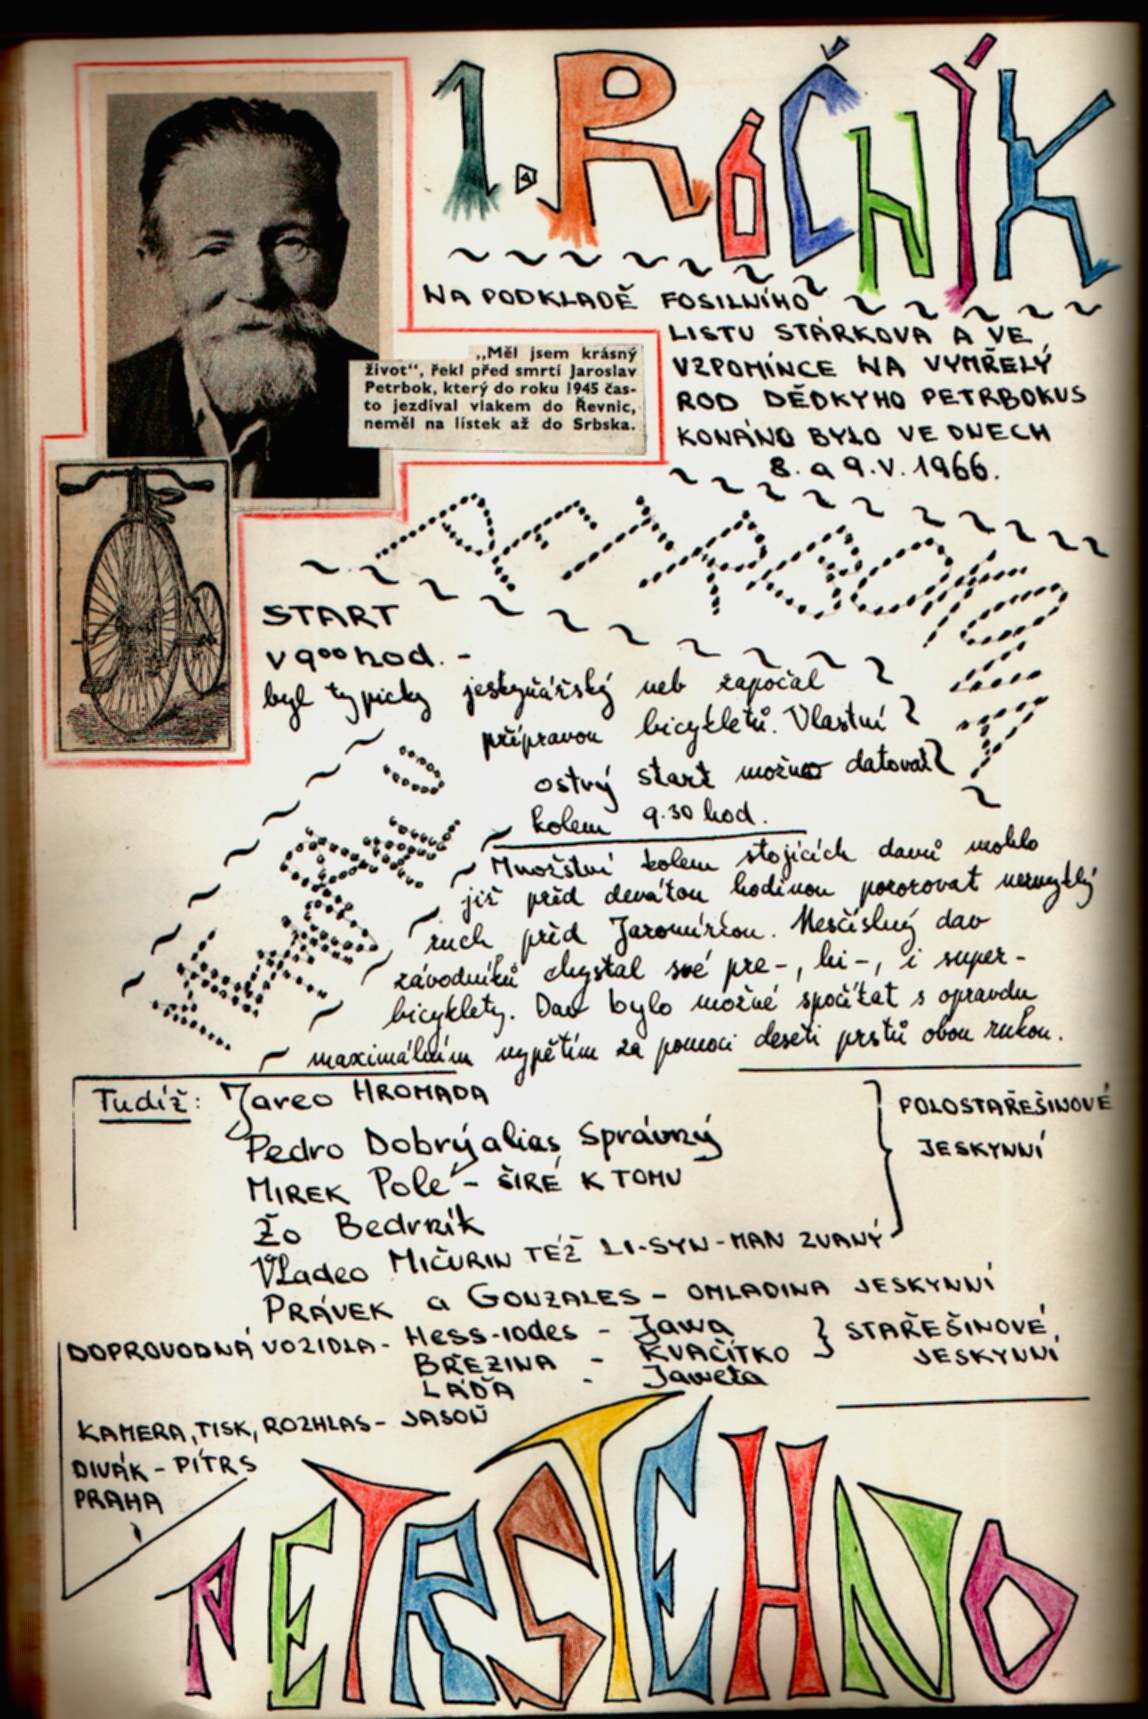 1. ROČNÍK
NA PODKLADĚ FOSILNÍHO
LISTU STÁRKOVA A VE
VZPOMÍNCE NA VYMŘELÝ
ROD DĚDKYHO PETRBOKUS
KONÁNO BYLO VE DNECH
8. a 9. V. 1966.
„Měl jsem krásný
život“, řekl před smrtí Jaroslav
Petrbok, který do roku 1945 čas-
to jezdíval vlakem do Řevnic,
neměl na lístek až do Srbska.
PETRBOKOVY
START
v 9⁰⁰ hod. -
byl typicky jeskyňářský neb započal
přípravou bicykletů. Vlastní
ostrý start možno datovat
kolem 9.30 hod.
MEMORIÁLU
Množství kolem stojících davů mohlo
již před devátou hodinou pozorovat nezvyklý
ruch před Jaromírkou. Nesčíslný dav
závodníků chystal své pre-, bi-, i super-
bicyklety. Dav bylo možné spočítat s opravdu
maximálním vypětím za pomoci deseti prstů obou rukou.
Tudíž: Jareo HROMADA
Pedro Dobrý alias Správný
MIREK Polé - ŠIRÉ K TOMU
Žo Bedrník
Vladeo MIČURIN TÉŽ LI-SYN-MAN ZVANÝ
POLOSTAŘEŠINOVÉ
JESKYNNÍ
PRÁVEK a GONZALES - OMLADINA JESKYNNÍ
DOPROVODNÁ VOZIDLA - Hess-iodes - Jawa
BŘEZINA - KVAČÍTKO
LÁĎA - Jaweta
STAŘEŠINOVÉ
JESKYNNÍ
KAMERA, TISK, ROZHLAS - JASOŇ
DIVÁK - PÍTRS
PRAHA
PETRSTEHNO